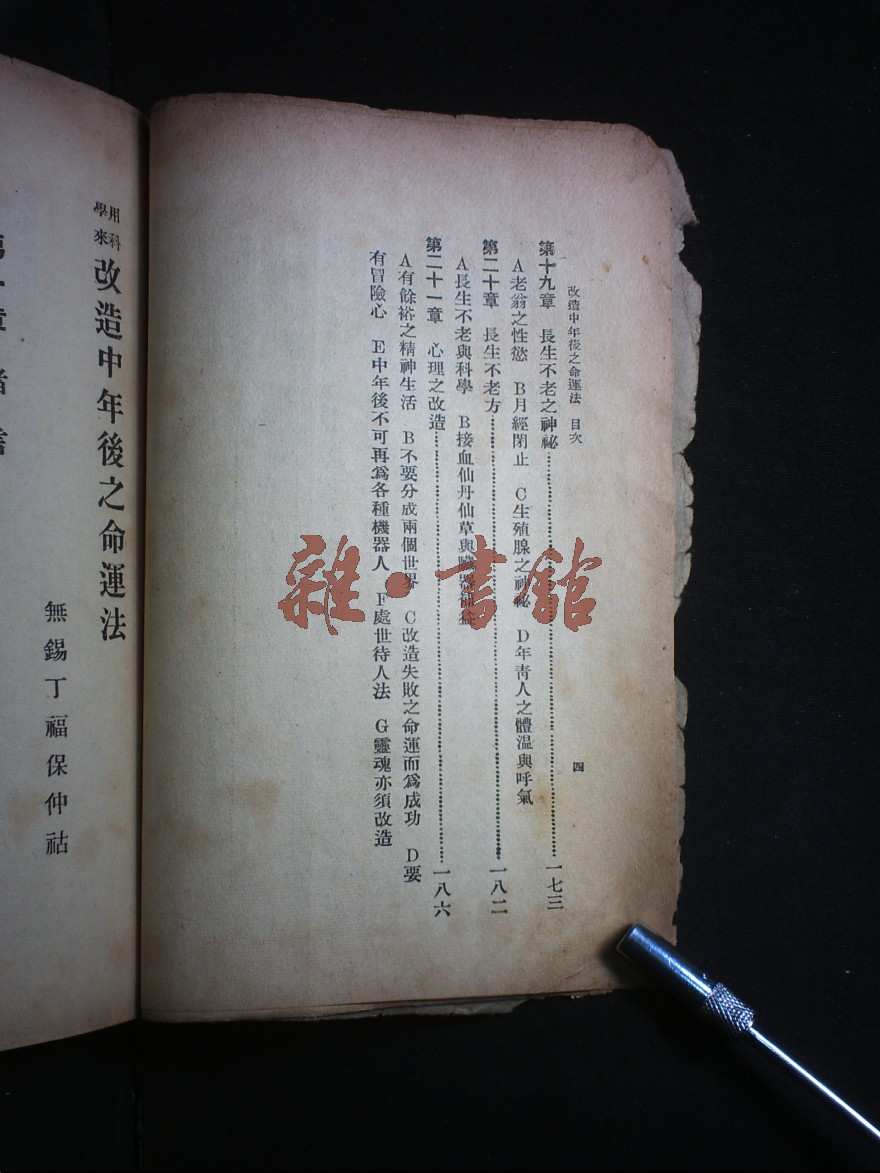 改造中年後之命運法　目次
四
第十九章　長生不老之神祕……一七三
A老翁之性慾　B月經閉止　C生殖腺之神祕　D年靑人之體溫與呼氣
第二十章　長生不老方……一八二
A長生不老與科學　B接血仙丹仙草與臟器補益
第二十一章　心理之改造……一八六
A有餘裕之精神生活　B不要分成兩個世界　C改造失敗之命運而爲成功　D要
有冒險心　E中年後不可再爲各種機器人　F處世待人法　G靈魂亦須改造
雜·書館
用科
學來
改造中年後之命運法
無錫丁福保仲祜